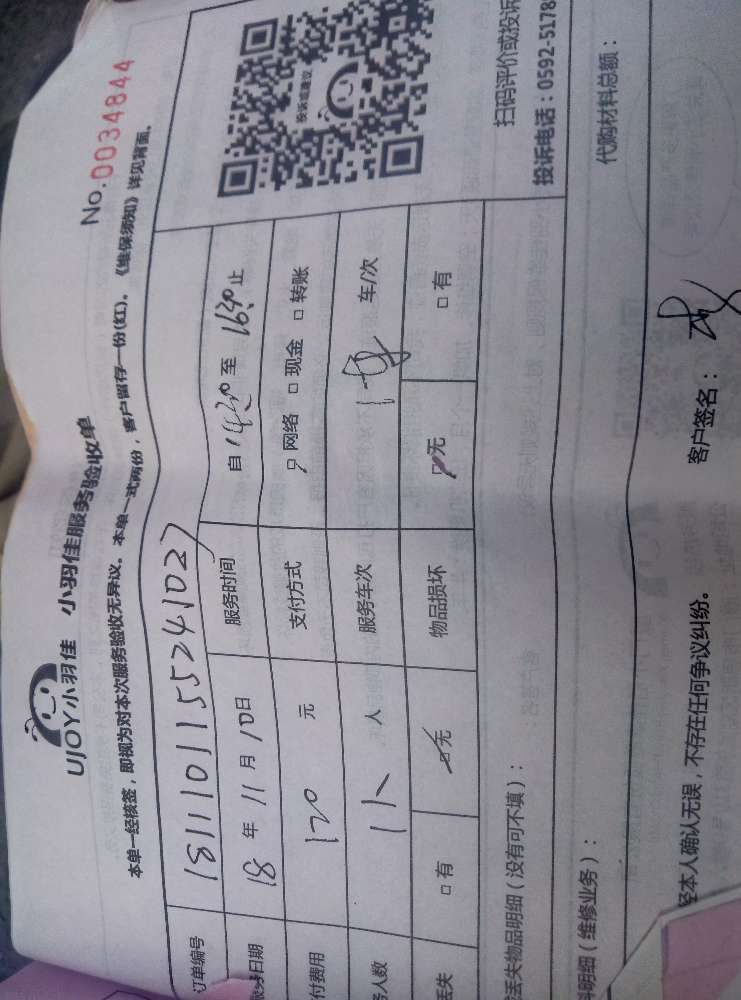 UJOY小羽佳 小羽佳服务验收单
No.0034844
本单一经核签,即视为对本次服务验收无异议。本单一式两份,客户留存一份(红)。《维保须知》详见背面。
订单编号 1811101155241027
服务日期 18年11月10日 服务时间 自14:30至16:30止
付费用 120元 支付方式 网络 现金 转账
务人数 1人 服务车次 车/次
丢失 有 无 物品损坏 无 有
投诉或建议
扫码评价或投诉
投诉电话:0592-5178
丢失物品明细(没有可不填):
代购材料总额:
料明细(维修业务):
经本人确认无误,不存在任何争议纠纷。 客户签名: